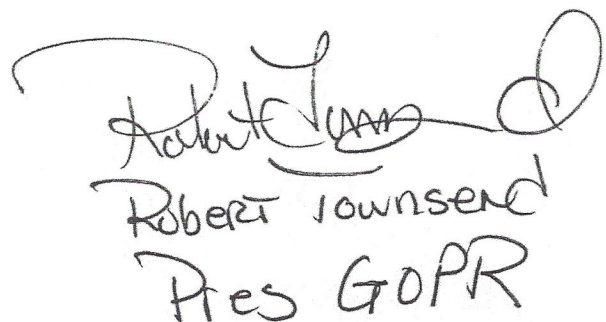 Robert Townsend
Robert Townsend
Pres GOPR